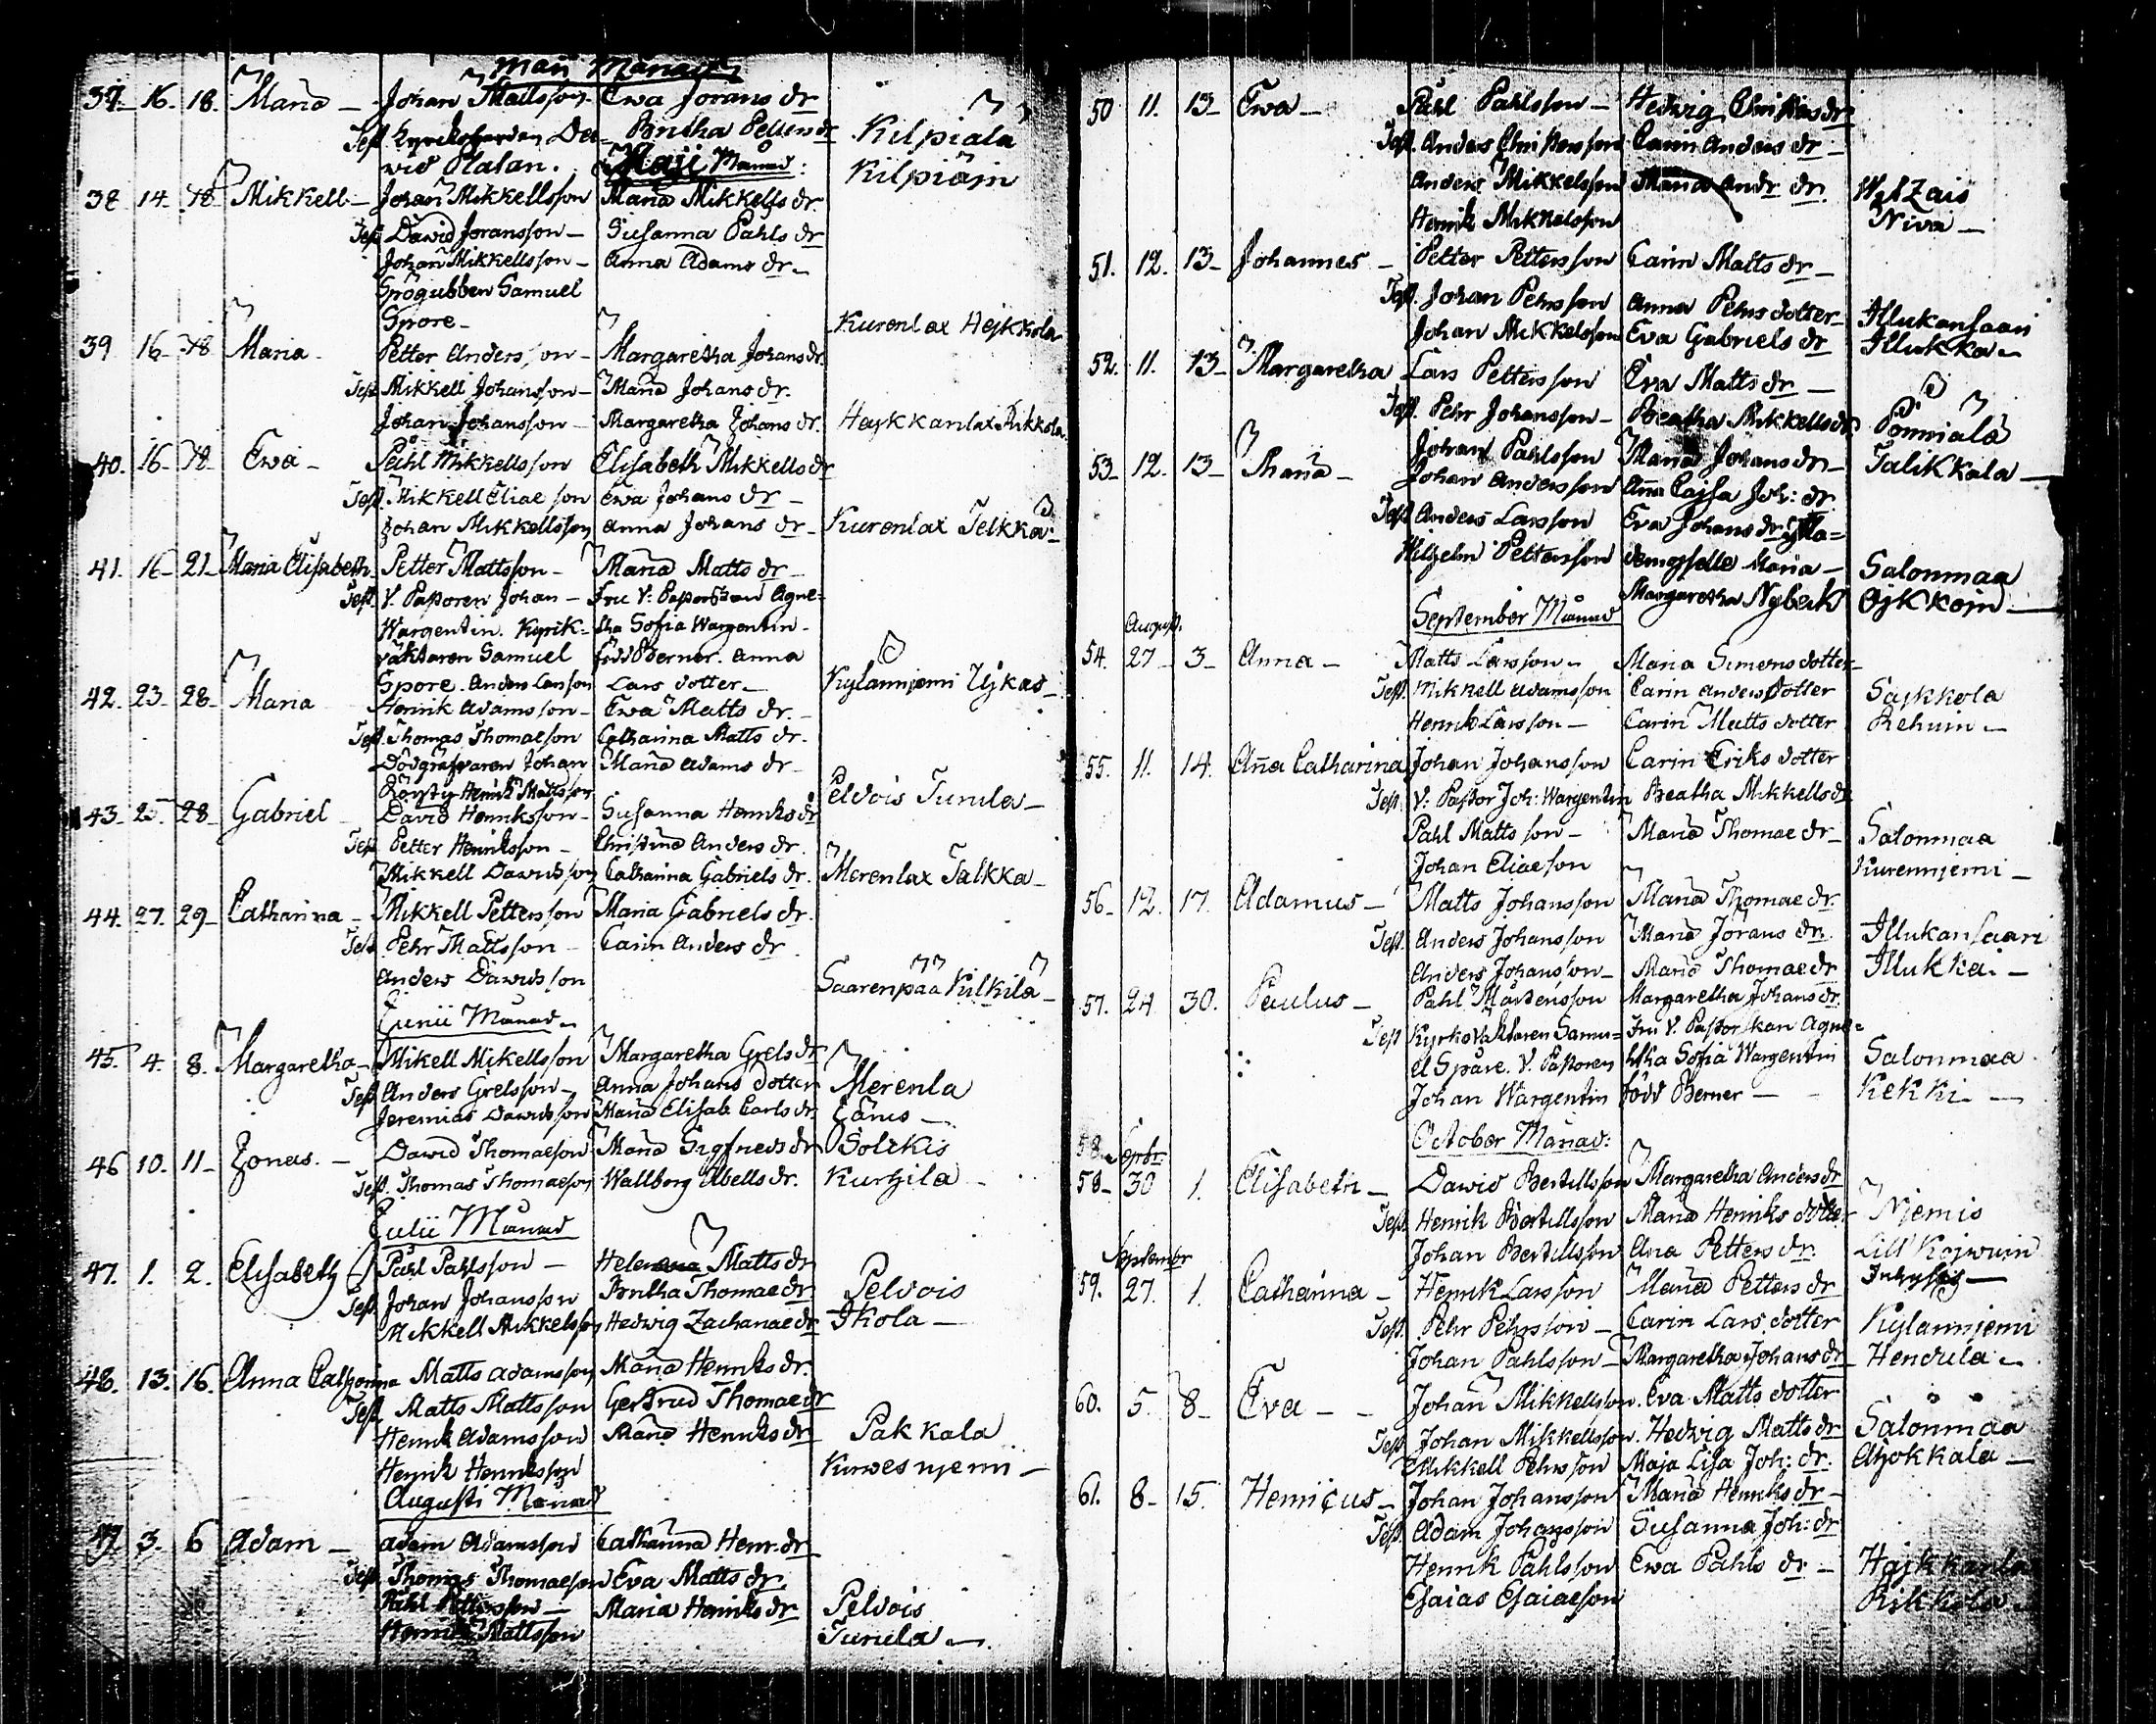 Maii Månad
37. 16. 18. Maria — Johan Mattsson. Ewa Jörans dr
Test. Kyrckioherden Da- Britha Petters dr Kilpiala
vid Alatan. Maji Månad: Kilpiäin
38 14. 18. Mikkell — Johan Mikkellsson Maria Mikkells dr.
Test David Joransson — Susanna Pahls dr
Johan Mikkellsson — Anna Adams dr —
Spögubben Samuel
Spore — Kurenlax Hejkkola
39 16. 18 Maria. Petter Andersson — Margaretha Johans dr
Test Mikkell Johansson — Maria Johans dr.
Johan Johansson — Margaretha Johans dr. Hajkkanlax Rikkola.
40. 16. 18. Ewa — Påhl Mikkellsson Elisabeth Mikkells dr
Test. Mikkell Eliae son Ewa Johans dr —
Johan Mikkellsson Anna Johans dr — Kurenlax Telkkä —
41. 16. 21. Maria Elisabeth Petter Mattsson — Maria Matts dr —
Test. V. Pastoren Johan — Fru V: Pastorskan Agne=
Wargentin. Kyrik= tha Sofia Wargentin —
väktaren Samuel född Berner. Anna
Spore. Anders Larsson Lars dotter — Kylännjemi Ujkas —
42. 23. 28. Maria Henrik Adamsson — Ewa Matts dr. —
Test. Thomas Thomaeson Catharina Matts dr.
Dödgräfvaren Johan Maria Adams dr —
Henrik Mattsson Peldois Turula —
43. 25. 28. Gabriel David Henriksson — Susanna Henriks dr
Test Petter Henriksson — Christina Anders dr.
Mikkell Davidsson Catharina Gabriels dr. Merenlax Talkka —
44. 27. 29. Catharina — Mikkell Pettersson Maria Gabriels dr.
Test Pehr Mattsson — Carin Anders dr
Anders Davidsson Saarenpää Kilkilä —
Junii Månad —
45. 4. 8. Margaretha — Mikell Mikellsson Margaretha Grels dr
Test Anders Grelsson — Anna Johans dotter Merenla
Jeremias Davidsson Maria Elisab. Carls dr
46 10. 11. Jonas. — David Thomaeson Maria Sigfrieds dr Solikis
Test. Thomas Thomaeson Wallborg Abells dr. Kurkila —
Julii Månad
47. 1. 2. Elisabeth Pahl Pahlsson — Helena Matts dr
Test. Johan Johansson Britha Thomae dr Peldois
Mikkell Mikkelsson Hedwig Zachariae dr Ikola —
48. 13. 16. Anna Catharina Matts Adamsson Maria Henriks dr.
Test Matts Mattsson Gertrud Thomae dr
Henrik Adamsson Maria Henriks dr Pakkala
Henrik Henriksson Kurvesnjemi —
Augusti Månad
49 3. 6 Adam — Adam Adamsson Catharina Henr: dr
Test. Thomas Thomaeson Eva Matts dr.
Pahl Pettersson — Maria Henriks dr Peldois
Henrik Mattsson Turula —
50 11. 13 — Ewa — Påhl Pahlsson — Hedwig Christers dr
Test. Anders Christersson Carin Anders dr —
Anders Mikkelsson Maria Andr dr.
Henrik Mikkelsson Niva —
51. 12. 13 — Johannes — Petter Pettersson Carin Matts dr —
Test. Johan Pehrsson Anna Pehrs dotter — Illukansaari
Johan Mikkelsson Eva Gabriels dr Illukka —
52. 11. 13 — Margaretha Lars Pettersson Eva Matts dr —
Test. Pehr Johansson — Beatha Mikkells dr Ponnialä
Johan Pahlsson Maria Johans dr — Talikkala —
53. 12. 13 — Maria — Johan Andersson Anna Cajsa Joh: dr
Test Anders Larsson Eva Johans dr Ma=
Wilhelm Pettersson demoiselle Maria — Salonmaa
Margaretha Nybeck Ojkkoin —
September Månad
August.
54. 27 3 — Anna — Matts Larsson — Maria Simons dotter —
Test. Mikkell Adamsson Carin Anders dotter Sajkkola
Henrik Larsson — Carin Matts dotter Rehuin —
55. 11. 14. Anna Catharina Johan Johansson Carin Eriks dotter
Test V: Pastor Joh: Wargentin Beatha Mikkells dr
Pahl Mattsson — Maria Thomae dr — Salonmaa
Johan Eliaeson Kurennjemi —
56 — 12. 17. Adamus — Matts Johansson Maria Thomae dr.
Test. Anders Johansson Maria Jörans dr. Illukansaari
Anders Johansson — Maria Thomae dr Illukka. —
57. 24 30. Paulus — Pahl Mårtensson Margaretha Johans dr.
Test Kyrkovaktaren Samu= Fru V. Pastorskan Agne=
el Spåre. V. Pastoren tha Sofia Wargentin Salonmaa
Johan Wargentin född Berner — Kekki —
October Månad:
58. Septbr.
58 — 30 1. Elisabeth — David Bertillsson Margaretha Anders dr
Test. Henrik Bertillsson Maria Henriks dotter Njemis
Johan Bertillsson Anna Petters dr. Lill Kojwuin
September
59. 27. 1. Catharina — Henrik Larsson Maria Petters dr
Test. Pehr Pehrsson — Carin Lars dotter Kylännjemi
Johan Pahlsson — Margaretha Johans dr Hendula —
60. 5. 8 — Eva — — Johan Mikkellsson. Eva Matts dotter
Test Johan Mikkellsson. Hedwig Matts dr Salonmaa
Mikkell Pehrsson Maja Lisa Joh: dr. Ahokkala —
61. 8 — 15. Henricus — Johan Johansson Maria Henriks dr —
Test. Adam Johansson Susanna Joh: dr
Henrik Pahlsson Ewa Pahls dr — Hajkkanla
Esaias Esaiaeson Rikkola —